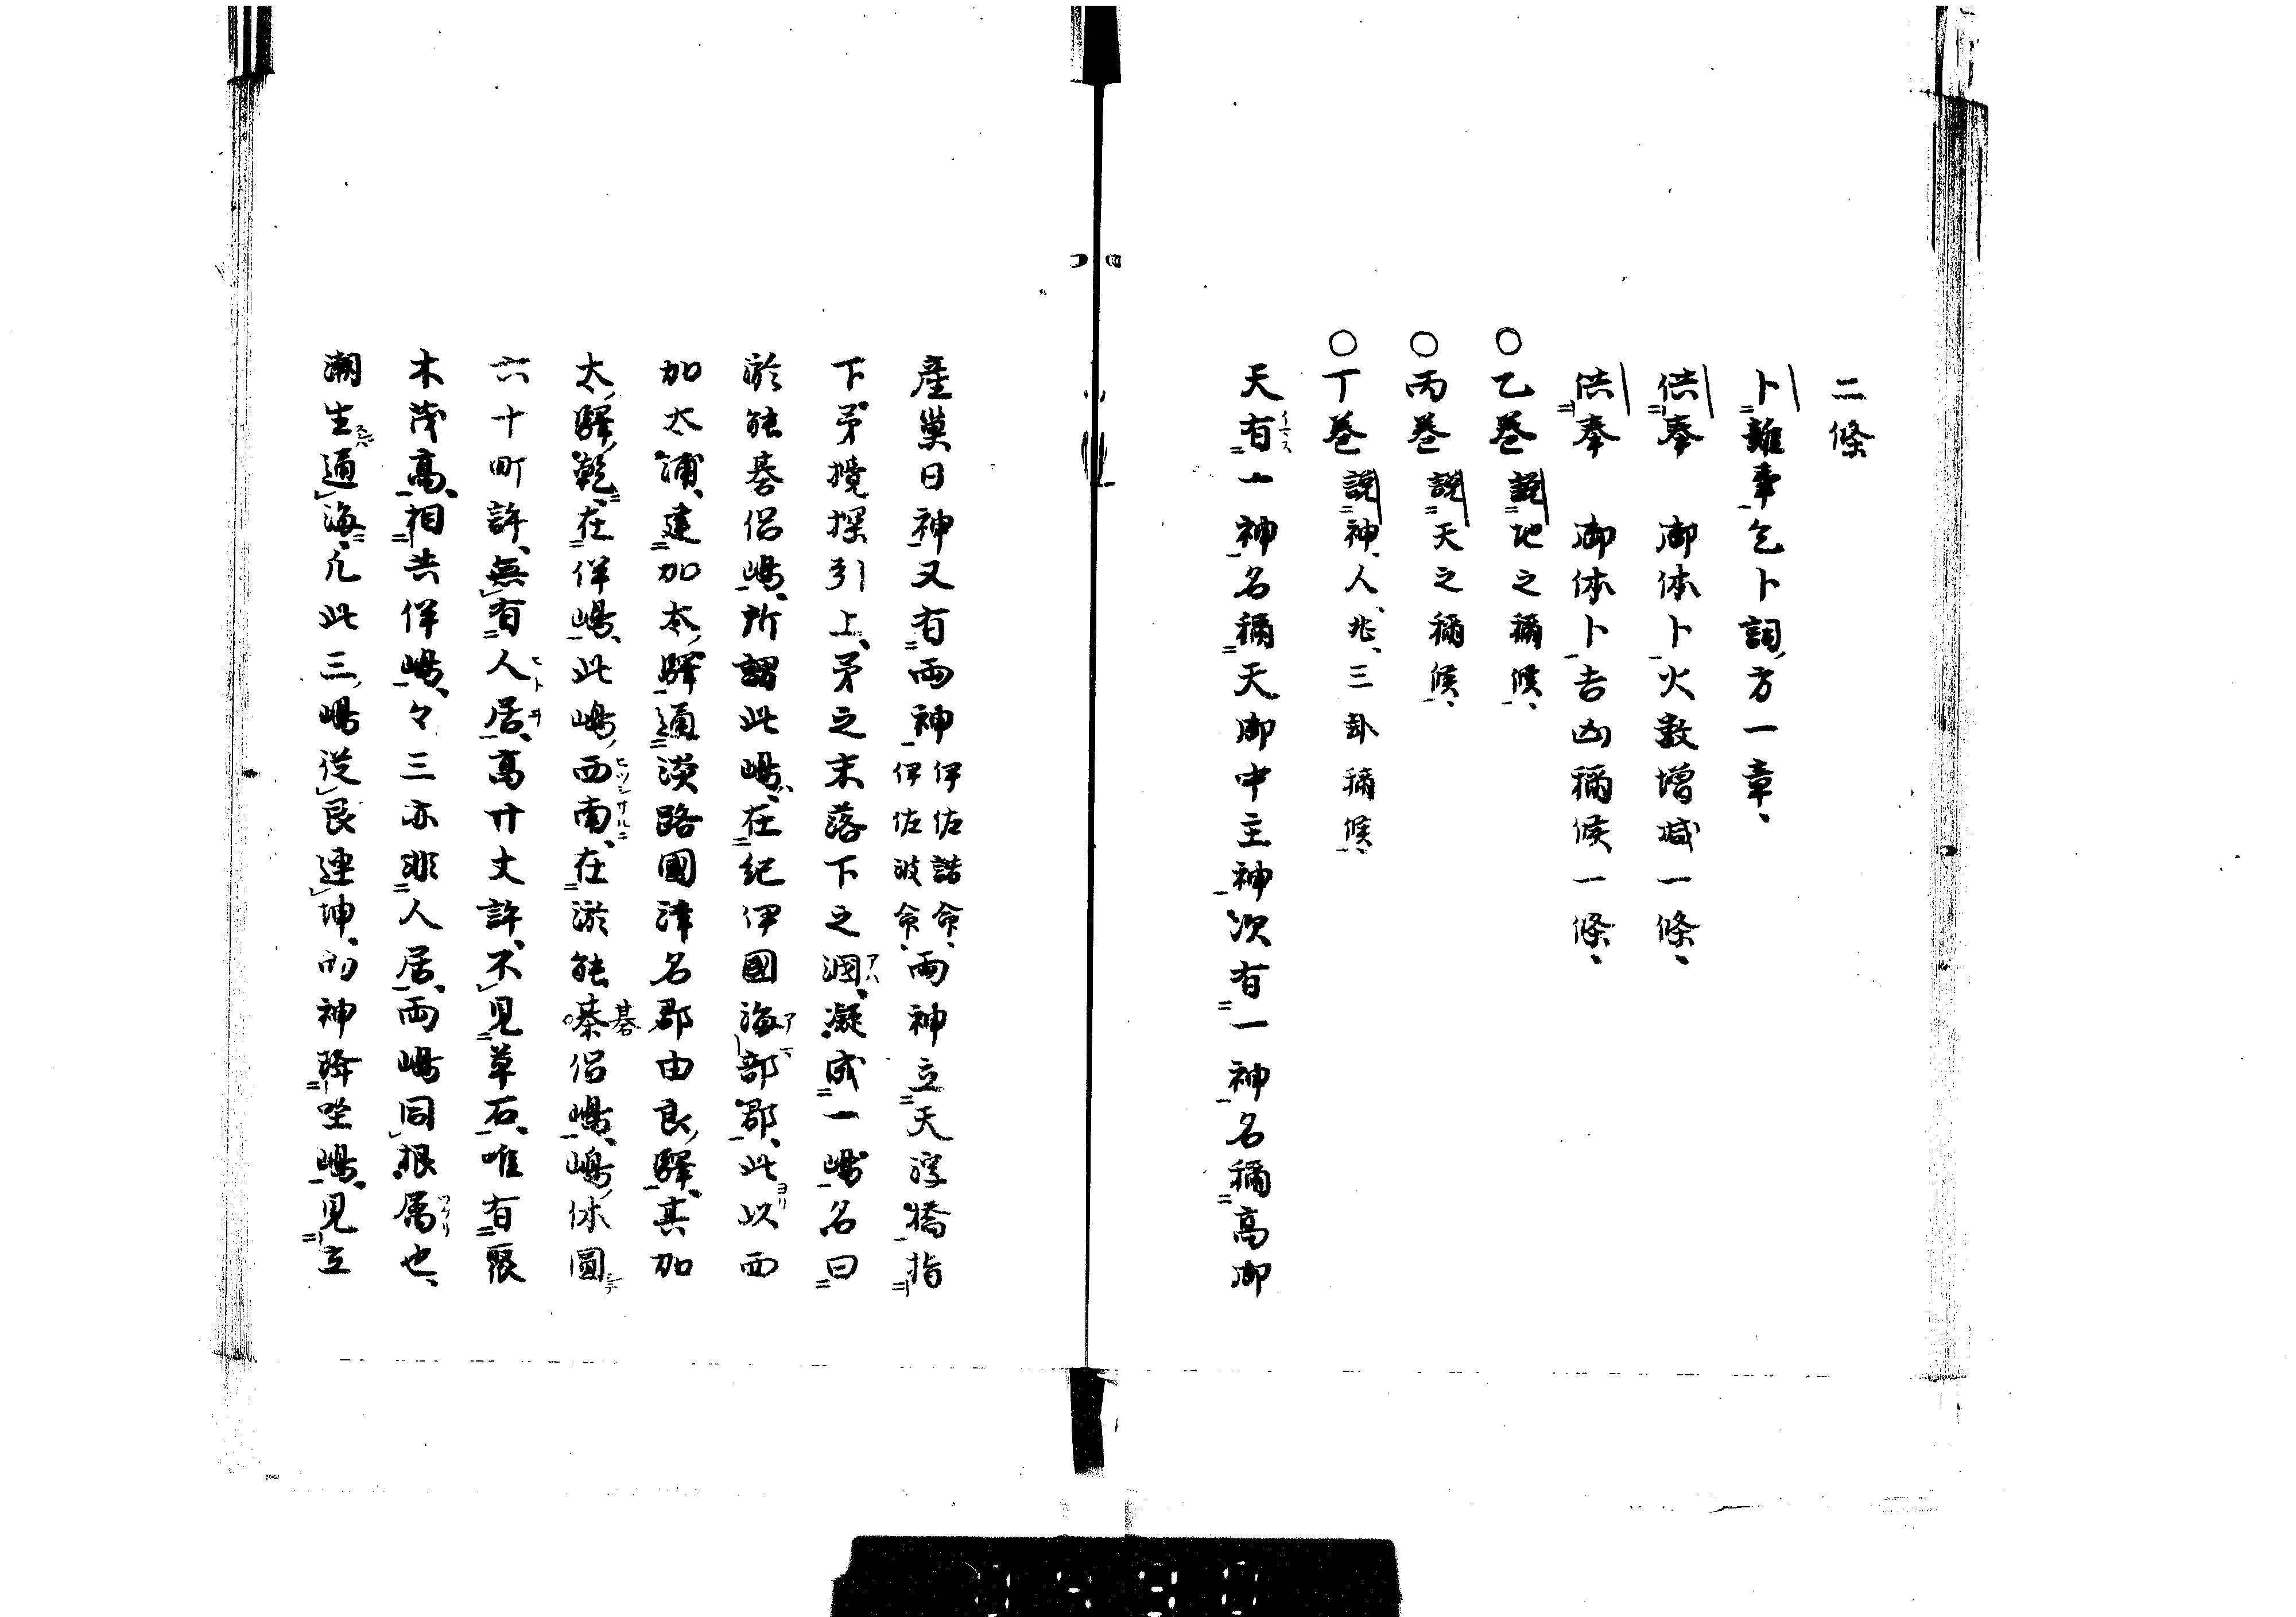 二條
卜雜事乞卜詞方一章、
供奉 御体卜火数増减一條、
供奉 御体卜吉凶稱候一條、
○乙巻 説地之稱候、
○丙巻 説天之稱候、
○丁巻 説神、人、兆、三卦稱候、
天有一神名稱天御中主神次有一神名稱高御
産巣日神又有両神伊佐諾命、伊佐波命、両神立天浮橋指
下矛攪探引上、矛之末落下之凅、凝成一嶋名曰
淤能碁侶嶋、所謂此嶋、在紀伊國海部郡、此以西
加太浦、建加太驛通淡路國津名郡由良驛、其加
太驛乾、在伴嶋、此嶋西南、在淤能棊侶嶋、嶋体圓
碁
六十町許、無有人居、高廾丈許、不見草石、唯有聚
木茂高、相共伴嶋、々三亦非人居、両嶋同根属也、
潮生通海、凢此三嶋従艮連坤、両神降坐嶋、見立